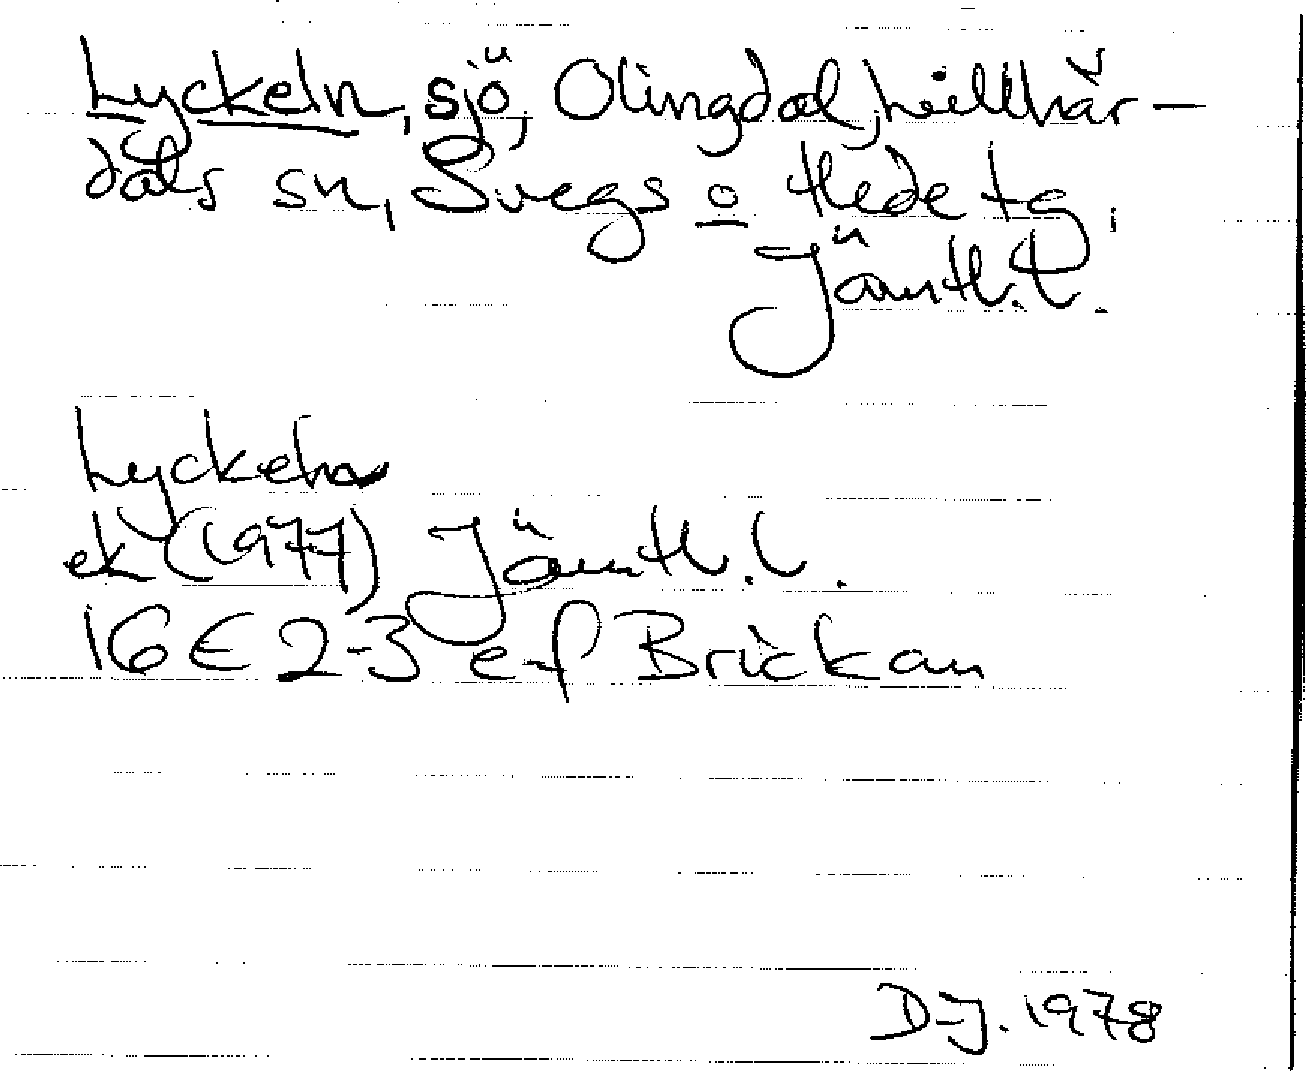 Lyckeln, sjö, Olingdal, Lillhär-
dals sn, Svegs o Hede tg,
Jämtl.l.
Lyckeln
ek (1977) Jämtl.l.
16E 2-3 e-f Brickan
D-J. 1978